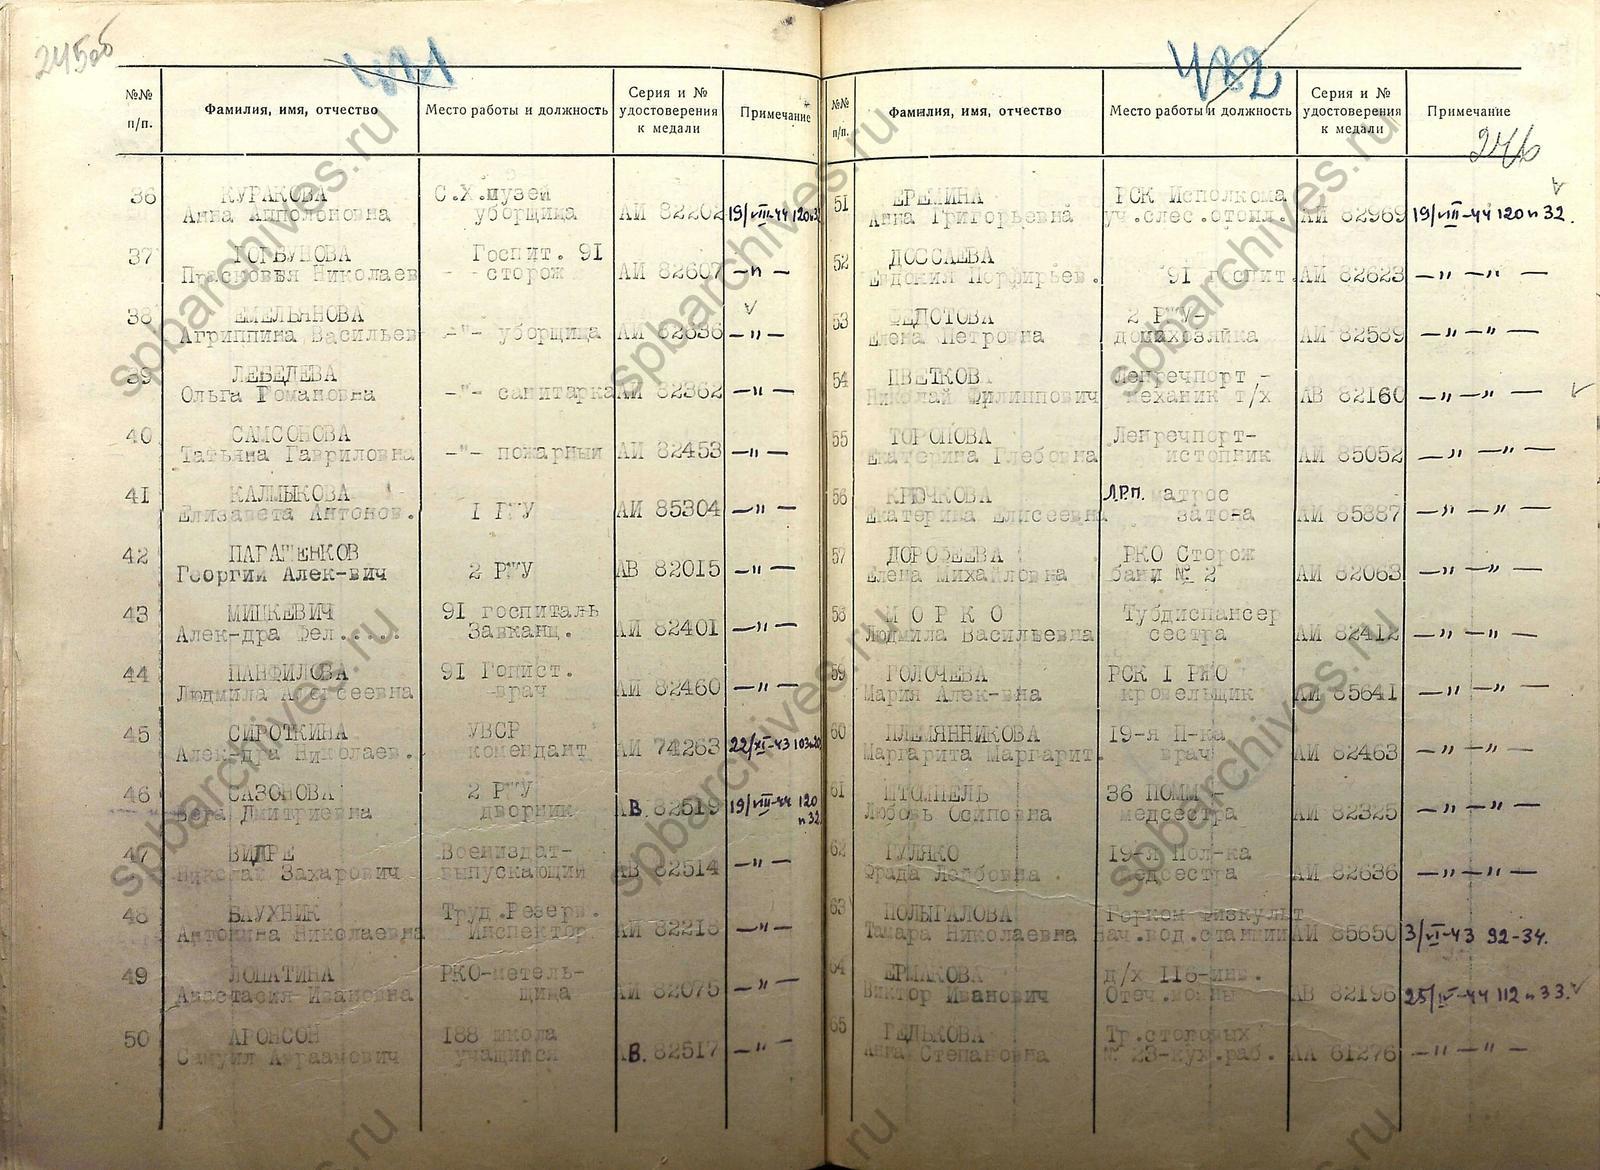 245об
421
№№ п/п.
Фамилия, имя, отчество
Место работы и должность
Серия и № удостоверения к медали
Примечание
36 КУРАКОВА С.Х.музей
Анна Апполоновна уборщица АИ 82202 19/VIII-44 120 п 32
37 ГОРБУНОВА Госпит. 91
Прасковья Николаев - - сторож АИ 82607 —"—
38 ЕМЕЛЬЯНОВА
Агриппина Васильев -"- уборщица АИ 82636 —"—
39 ЛЕБЕДЕВА
Ольга Романовна -"- санитарка АИ 82362 —"—
40 САМСОНОВА
Татьяна Гавриловна -"- пожарный АИ 82453 —"—
41 КАЛМЫКОВА
Елизавета Антонов. I РЖУ АИ 85304 —"—
42 ПАРАЩЕНКОВ
Георгий Алек-вич 2 РЖУ АВ 82015 —"—
43 МИЦКЕВИЧ 91 госпиталь
Алек-дра Фел..... Завканц. АИ 82401 —"—
44 ПАНФИЛОВА 91 Гопист.
Людмила Алексеевна врач АИ 82460 —"—
45 СИРОТКИНА УВСР
Алек-дра Николаев. комендант АИ 74263 22/XI-43 103
46 САЗОНОВА 2 РЖУ
Вера Дмитриевна дворник АВ. 82519 19/VIII-44 120
п 32
47 ВИДРЕ Воениздат-
Николай Захарович выпускающий АВ 82514 —"—
48 БАУХНИК Труд.Резерв.
Антонина Николаевна Инспектор АИ 82218 —"—
49 ЛОПАТИНА РКО-метель-
Анастасия Ивановна щица АИ 82075 —"—
50 АРОНСОН 188 школа
Самуил Авраамович учащийся АВ. 82517 —"—
422
№№ п/п.
Фамилия, имя, отчество
Место работы и должность
Серия и № удостоверения к медали
Примечание
246
51 ЕРЕМИНА РСК Исполкома
Анна Григорьевна уч.слес.отопл. АИ 82969 19/VIII-44 120 п 32.
52 ДОССАЕВА
Евдокия Порфирьев. 91 госпит. АИ 82623 —"—"—
53 ФЕДОТОВА 2 РЖУ-
Елена Петровна домахозяйка АИ 82589 —"—"—
54 ЦВЕТКОВ Ленречпорт -
Николай Филиппович механик т/х АВ 82160 —"—"—
55 ТОРОПОВА Ленречпорт-
Екатерина Глебовна истопник АИ 85052 —"—"—
56 КРЮЧКОВА Л.Р.П. матрос
Екатерина Елисеевна затона АИ 85387 —"—"—
57 ДОРОФЕЕВА РКО Сторож
Елена Михайловна бани № 2 АИ 82063 —"—"—
58 М О Р К О Тубдиспансер
Людмила Васильевна сестра АИ 82412 —"—"—
59 ГОЛОЧЕВА РСК I РЖО
Мария Алек-вна кровельщик АИ 85641 —"—"—
60 ПЛЕМЯННИКОВА 19-я П-ка
Маргарита Маргарит. врач АИ 82463 —"—"—
61 ШТОМПЕЛЬ 36
Любовь Осиповна медсестра АИ 82325 —"—"—
62 ГУЛЯКО 19-я Пол-ка
Фрада Лейбовна медсестра АИ 82636 —"—"—
63 ПОЛЫГАЛОВА Горком физкульт
Тамара Николаевна нач.вод.станции АИ 85650 3/VI-43 92-34.
64 ЕРМАКОВА д/х 116-инв.
Виктор Иванович Отеч.войны АВ 82196 25/IV-44 112 п 33.
65 ГЕДЬКОВА Тр.столовых
Анна Степановна № 23-кух.раб. АА 61276 —"—"—
spbarchives.ru